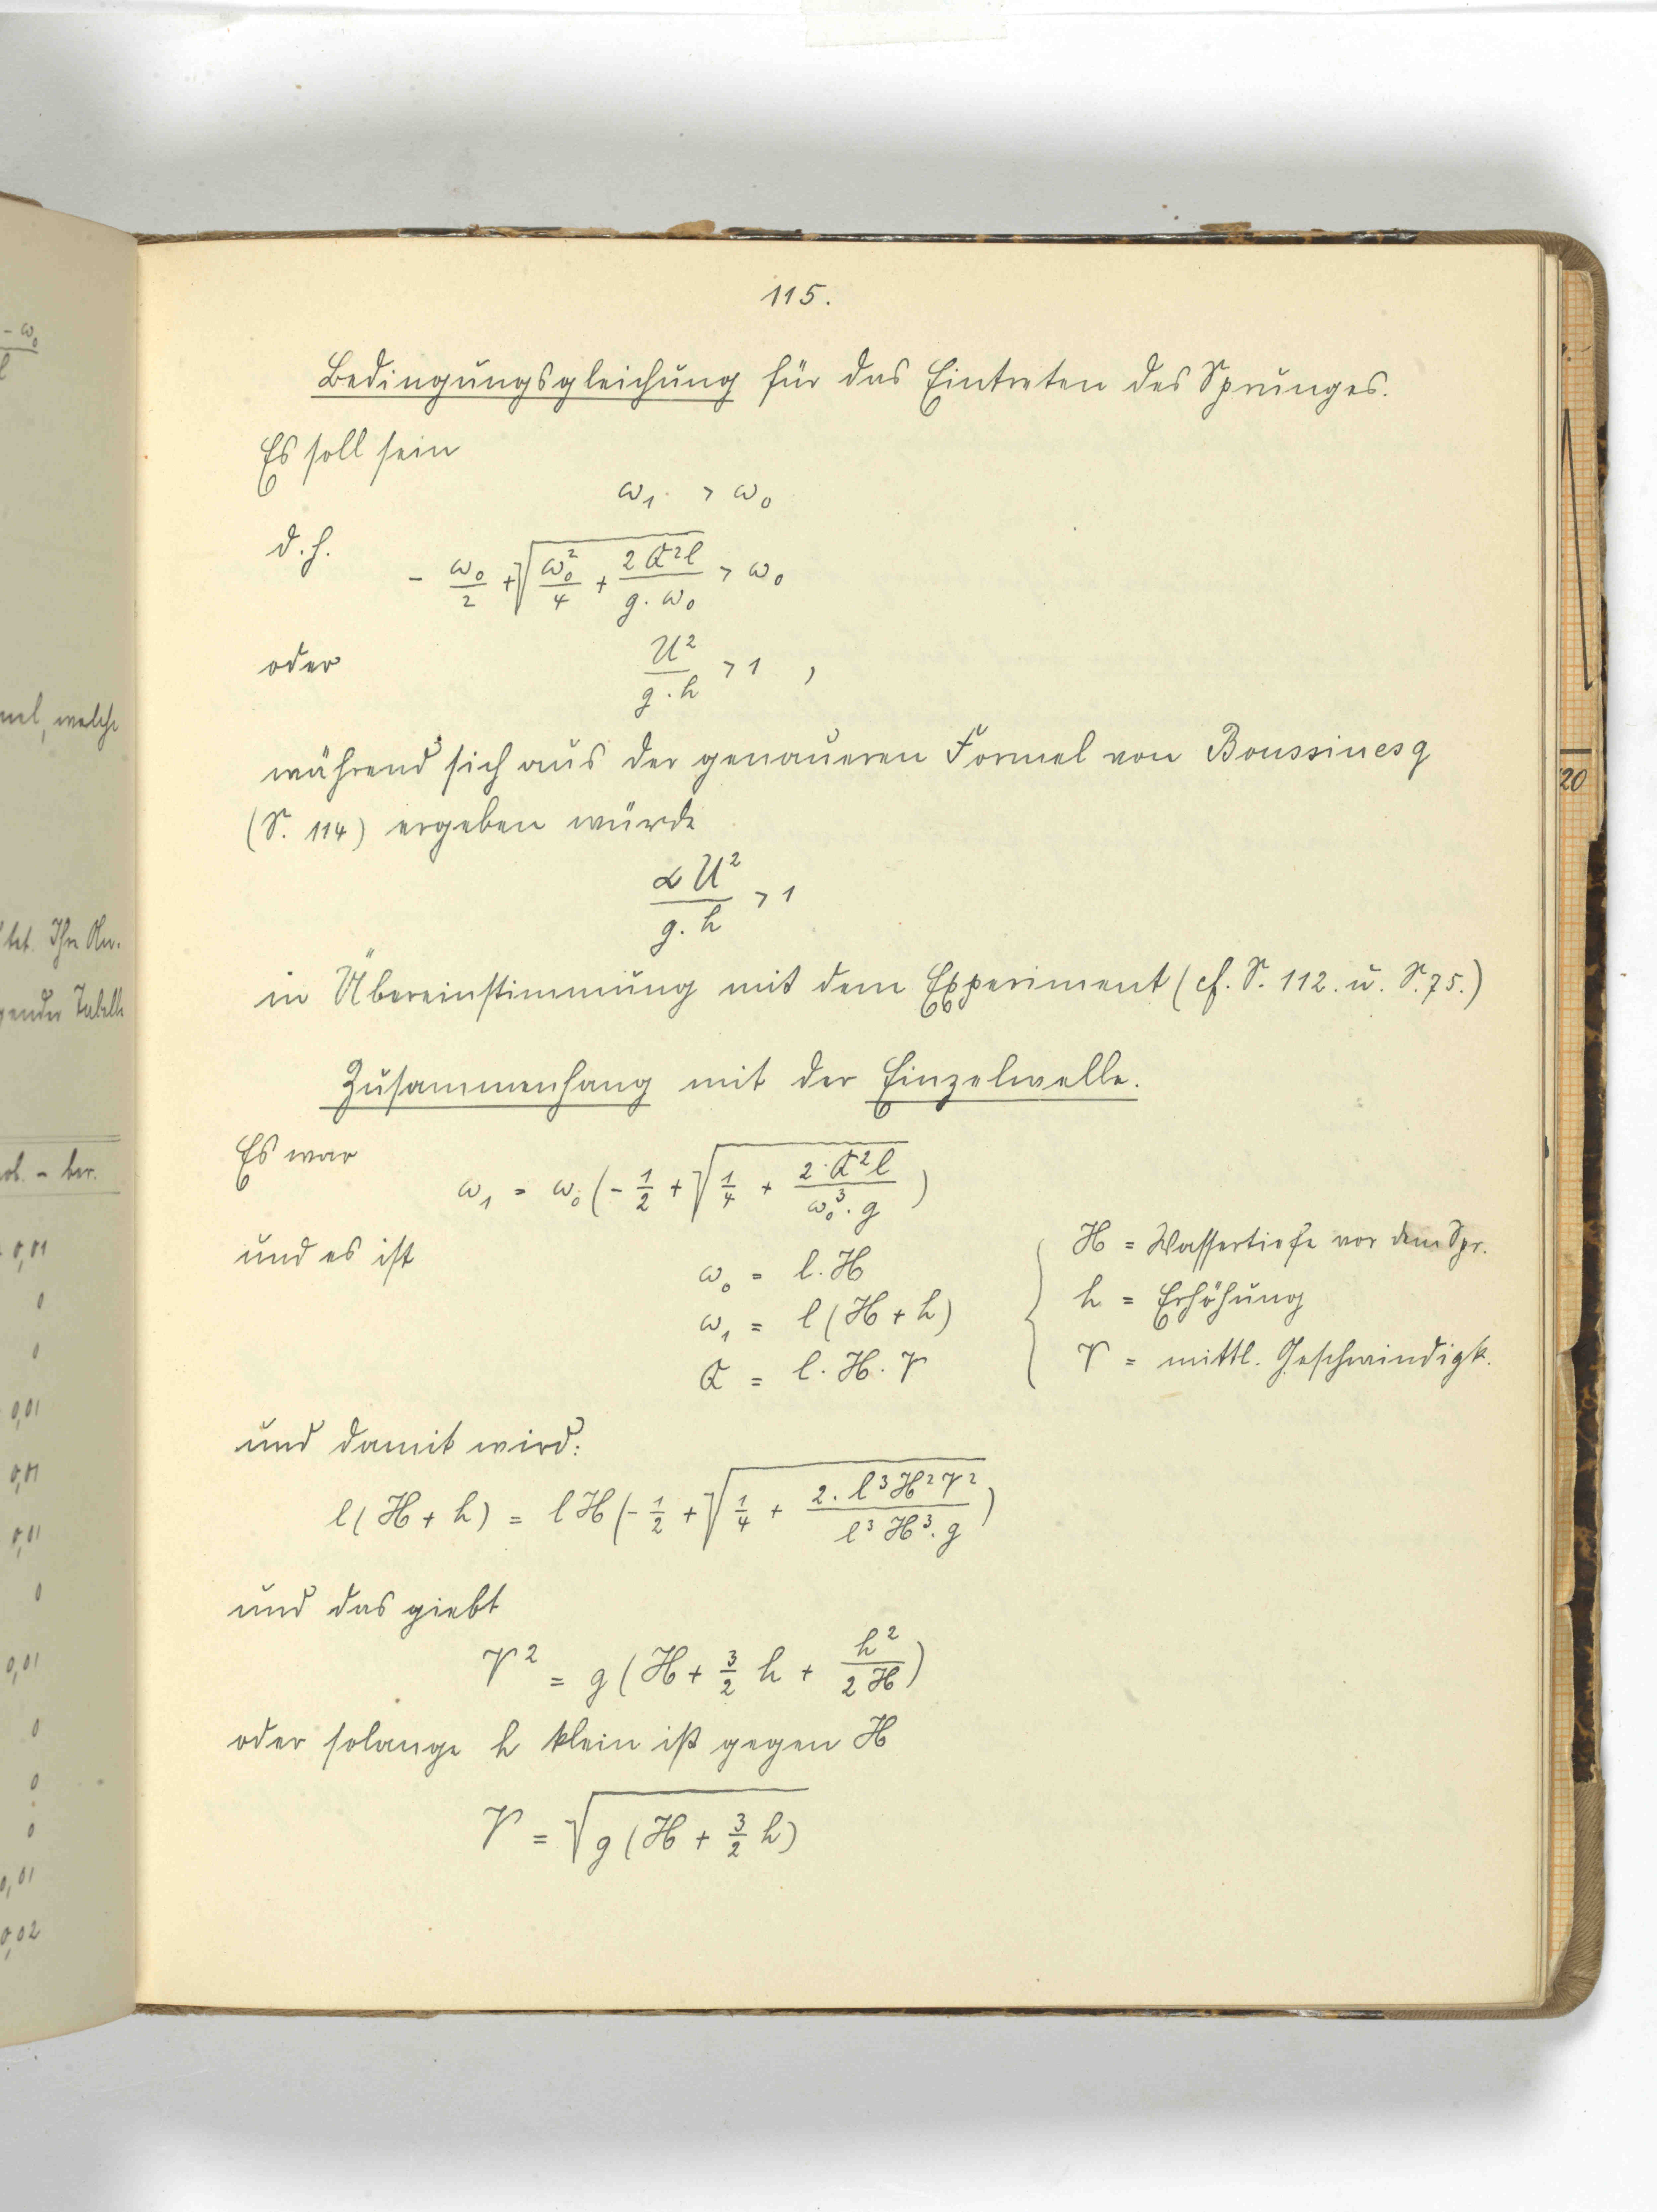 115.
Bedingungsgleichung für das Eintreten des Sprunges.
Es soll sein
ω₁ > ω₀
d.h. - ω₀/2 + √(ω₀²/4 + 2Q²l/(g.ω₀)) > ω₀
oder U²/(g.h) > 1 ,
während sich aus der genaueren Formel von Boussinesq
(S. 114) ergeben würde
αU²/(g.h) > 1
in Übereinstimmung mit dem Experiment (cf. S. 112. u. S. 75.)
Zusammenhang mit der Einzelwelle.
Es war
ω₁ = ω₀(- 1/2 + √(1/4 + 2.Q²l/(ω₀³.g)))
und es ist
ω₀ = l.H
ω₁ = l(H + h)
Q = l.H.V
H = Wassertiefe vor dem Spr.
h = Erhöhung
V = mittl. Geschwindigk.
und damit wird:
l(H + h) = lH(- 1/2 + √(1/4 + 2.l³H²V²/(l³H³.g)))
und das giebt
V² = g(H + 3/2 h + h²/(2H))
oder solange h klein ist gegen H
V = √(g(H + 3/2 h))
- ω₀
l
welche
tet. Ihre
gender Tabelle
- ber.
0,01
0
0
0,01
0,01
0,01
0
0,01
0
0
0
0,01
0,02
20